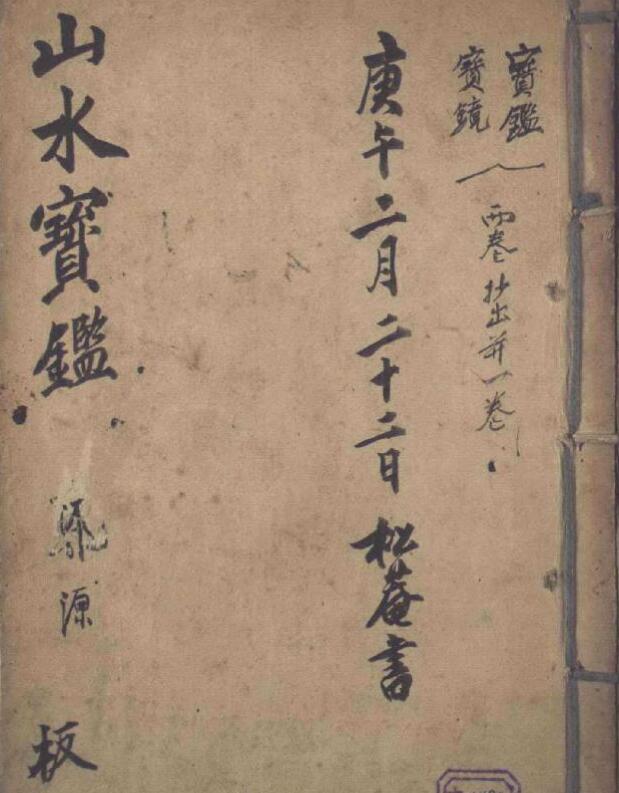 寶鑑
寶鏡
兩卷抄出并一卷
庚午二月二十二日 松菴書
山水寶鑑
源
板